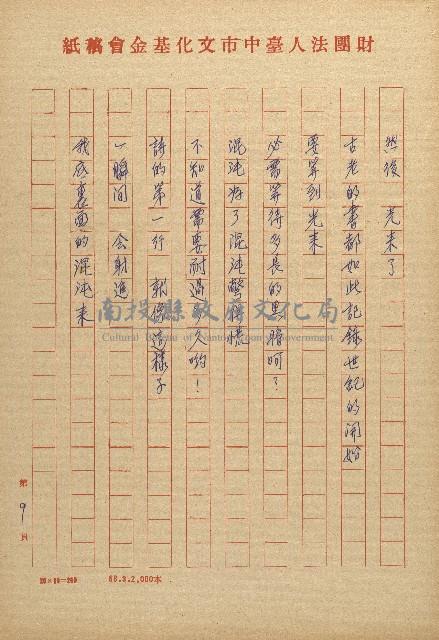 財團法人臺中市文化基金會稿紙
然後　光来了
古老的書都如此記錄世紀的開始
要等到光来
必需等待多長的黑暗呵？
混沌好了混沌
不知道需要耐過多久喲！
詩的第一行　就像這樣子
一瞬间　会射進
我底裏面的混沌来
南投縣政府文化局
Cultural Bureau of Nantou County Government
第9頁
88.3.2,000本